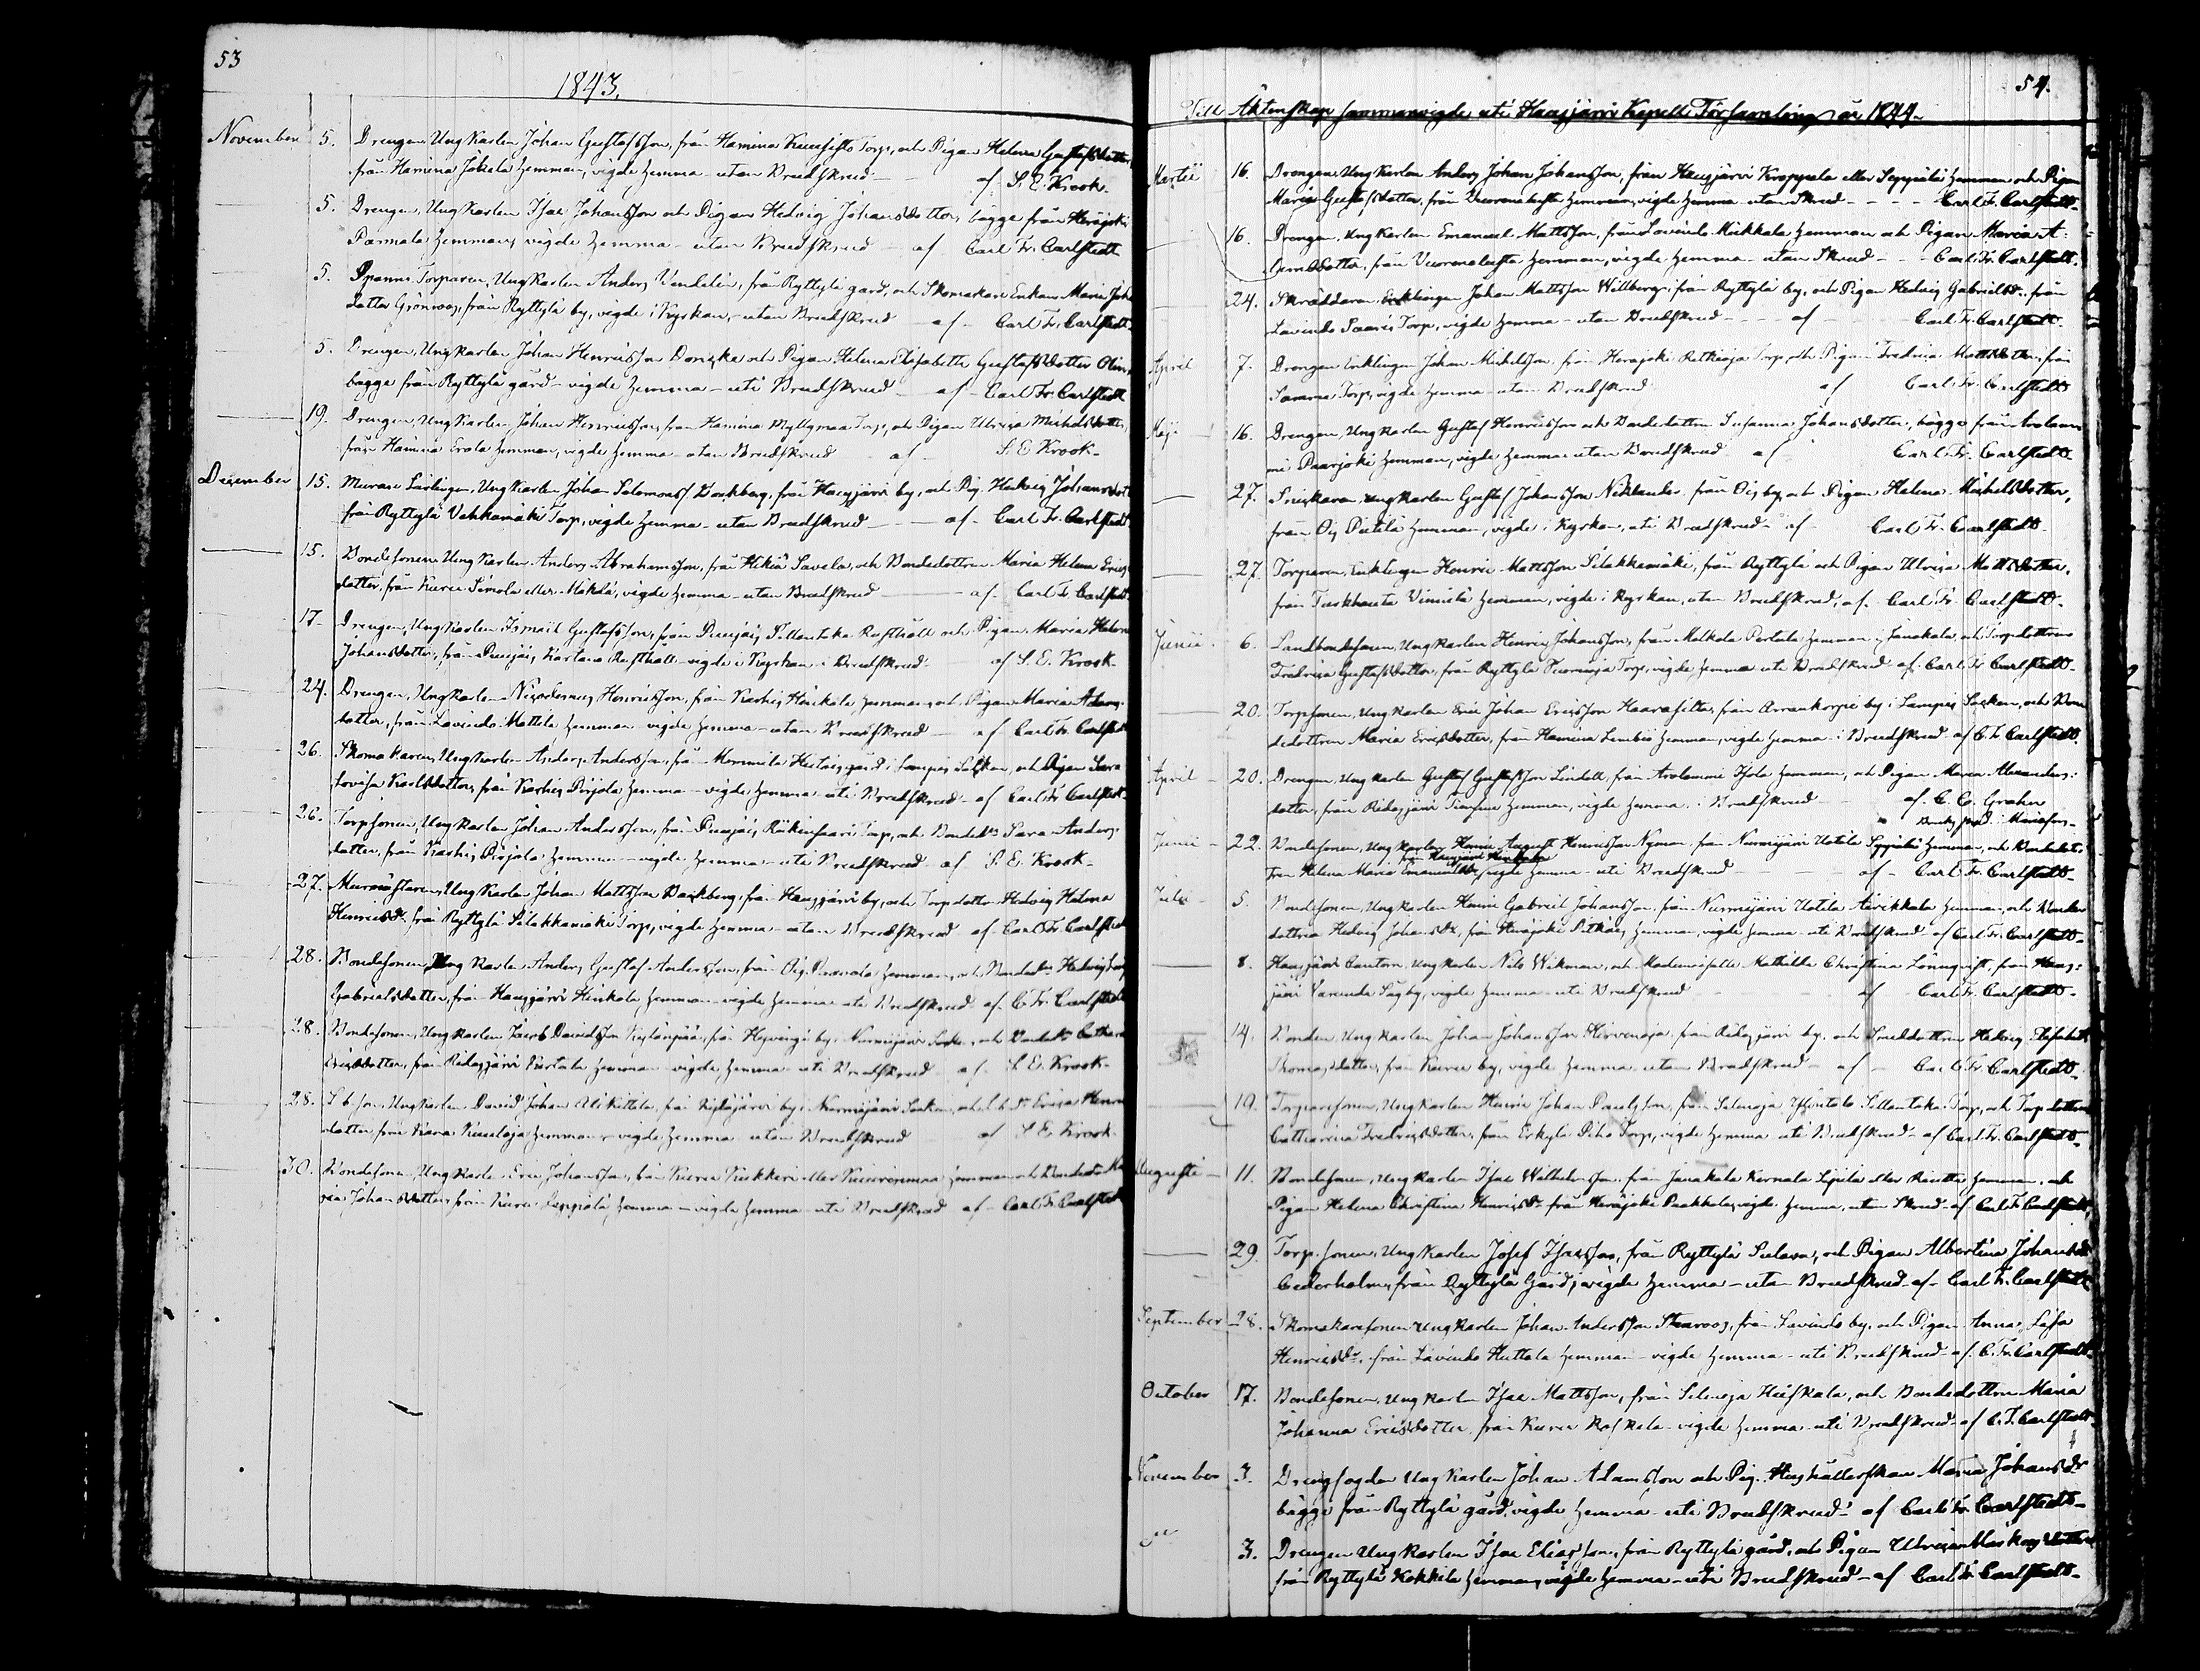 53
1843.
November 5. Drengen, Ungkarlen Johan Gustafsson, från Hamina Kuusisto Torp, och Pigan Helena Gustafsdotter,
från Hamina Jokela Hemman, vigde hemma utan Brudskrud af S. E. Krook.
5. Drengen, Ungkarlen Isac Johansson och Pigan Hedvig Johansdotter, bägge från Herajoki
Parmala Hemman, vigde hemma utan Brudskrud af Carl Fr. Carlstedt
5. Torparen, Ungkarlen Anders Vendelin, från Ryttylä gård, och Skomakare Enkan Maria Joh
dotter Grönroos, från Ryttylä by, vigde i Kyrkan, utan Brudskrud af Carl Fr. Carlstedt
5. Drengen, Ungkarlen Johan Henricsson och Pigan Helena Elisabetta Gustafsdotter
bägge från Ryttylä gård vigde hemma uti Brudskrud af Carl Fr. Carlstedt
19. Drengen, Ungkarlen Johan Henricsson, från Hamina Myllymaa Torp, och Pigan Ulrica Michelsdotter,
från Hamina Erola Hemman, vigde hemma utan Brudskrud af S. E. Krook
December 15. Murare Lärlingen, Ungkarlen Johan Salomonss Backberg, från Hausjärvi by, och Pig. Hedvig Johansdott
från Ryttylä Vahkamäki Torp, vigde hemma utan Brudskrud af Carl Fr. Carlstedt
15. Bondesonen Ungkarlen Anders Abrahamsson, från Hikiä Savela, och Bondedottren Maria Helena Erics
dotter, från Kuru Simola eller Mäkilä, vigde hemma utan Brudskrud af Carl Fr. Carlstedt
17. Drengen, Ungkarlen Ismael Gustafsson, från Puujäis Rusthåll och Pigan Maria Helena
Johansdotter, från Puujäis Kartano Rusthåll vigde i Kyrkan i Brudskrud af S. E. Krook
24. Drengen, Ungkarlen Nicodemus Henricsson, från Karhis Heinkala hemman, och Pigan Maria Adams
dotter, från Lavinto Mattila hemman vigde hemma utan Brudskrud af Carl Fr. Carlstedt
26. Skomakaren, Ungkarlen Anders Andersson, från Mommila gård i Lampis Socken, och Pigan Sara
Lovisa Karlsdotter, från Karhis Pirjola hemman vigde hemma uti Brudskrud af Carl Fr. Carlstedt
26. Torpsonen, Ungkarlen Johan Andersson, från Puujäis Torp, och Bonded:r Sara Anders
dotter, från Karhis Pirjola hemman vigde hemma uti Brudskrud af S. E. Krook
27. Murmästaren, Ungkarlen Johan Mattsson Backberg, från Hausjärvi by, och Torpdotter Hedvig Helena
Henricsdr, från Ryttylä Silakkamäki Torp, vigde hemma utan Brudskrud af Carl Fr. Carlstedt
28. Bondesonen, Ung Karlen Anders Gustaf Andersson, från Ois hemman, och Hedvig
Gabrielsdotter, från Hausjärvi Heikola hemman vigde hemma uti Brudskrud af C. Fr. Carlstedt
28. Bondesonen, Ungkarlen Jacob Davidsson från Hyvinge by i Nurmijärvi Socken, och
Ericsdotter, från Ridasjärvi hemman vigde hemma uti Brudskrud af S. E. Krook
28. Ungkarlen David Johan från by i Nurmijärvi Socken, och Erica Henric
dotter från Kara hemman vigde hemma utan Brudskrud af S. E. Krook
30. Bondesonen, Ungkarlen Eric Johansson, från Kuru hemman och Bonded:r Ma
ria Johansdotter, från Kuru Seppälä hemman vigde hemma uti Brudskrud af Carl Fr. Carlstedt
54.
Till Äktenskap sammanvigde uti Hausjärvi Kapell Församling år 1844.
Martii 16. Drengen Ungkarlen Anders Johan Johansson, från Hausjärvi eller Seppälä Hemman och Pigan
Maria Gustafsdotter, från Hemman, vigde hemma utan Skrud Carl Fr. Carlstedt
16. Drengen, Ungkarlen Emanuel Mattsson, från Lavinto Mikkola Hemman och Pigan Maria A:
damsdotter, från Hemman, vigde hemma utan Skrud Carl Fr. Carlstedt
24. Skräddaren, Enklingen Johan Mattsson Willberg, från Ryttylä by, och Pigan Hedvig Gabrielsdr. från
Lavinto Saaris Torp, vigde hemma utan Brudskrud af Carl Fr. Carlstedt
April 7. Drengen Enklingen Johan Michelsson, från Herajoki Torp, och Pigan Fredrica Mattsdotter, från
Samma Torp, vigde hemma utan Brudskrud af Carl Fr. Carlstedt
Maji 16. Drengen, Ungkarlen Gustaf Henricsson och Bondedottren Susanna Johansdotter, bägge från Arolam
mi Paarjoki hemman, vigde hemma utan Brudskrud af Carl Fr. Carlstedt
27. Snickaren, Ungkarlen Gustaf Johansson Niklander från Ois by, och Pigan Helena Michelsdotter,
från Ois Pietilä hemman, vigde i Kyrkan, uti Brudskrud af Carl Fr. Carlstedt
27. Torparen, Enklingen Henric Mattsson Silakkamäki, från Ryttylä och Pigan Ulrica Mattsdotter,
från Turkhauta hemman, vigde i Kyrkan, utan Brudskrud, af Carl Fr. Carlstedt
Junii 6. Landbondesonen, Ungkarlen Henric Johansson, från Melkola Pertula hemman i Janakala, och Torpdottren
Fredrica Gustafsdotter, från Ryttylä Torp, vigde hemma uti Brudskrud af Carl Fr Carlstedt
20. Torpsonen, Ungkarlen Eric Johan Ericsson från Arrankorpi by i Lampis Socken, och Bon
dedottren Maria Ericsdotter, från Hamina hemman, vigde hemma i Brudskrud af C. Fr Carlstedt
April 20. Drengen, Ungkarlen Gustaf Gustafsson Lindell, från Arolammi hemman, och Pigan Maria Alexanders:
dotter, från Ridasjärvi hemman, vigde hemma i Brudskrud af C. G. Grahn
Junii 22. Bondesonen, Ungkarlen Henric August Henricsson Nyman från Nurmijärvi Uotila Seppälä hemman, och Bondedot:
från Hausjärvi Heikola
tren Helena Maria Emanuelsdr, vigde hemma uti Brudskrud af Carl Fr. Carlstedt
Julii 5. Bondesonen, Ungkarlen Henric Gabriel Johansson, från Nurmijärvi Uotila hemman, och Bonde
dottren Hedvig Johansdr, från Herajoki hemman, vigde hemma uti Brudskrud af Carl Fr. Carlstedt
8. Hausjärvi Cantorn, Ungkarlen Nils Wikman, och Mademoiselle Mathilda Christina Lönnqvist, från Haus:
järvi by, vigde hemma uti Brudskrud af Carl Fr. Carlstedt
14. Bonden, Ungkarlen Johan Johansson Hirvenoja, från Ridasjärvi by, och Smeddottren Hedvig Elisabeth
Thomasdotter, från Kuru by, vigde hemma utan Brudskrud af Carl Fr. Carlstedt
19. Torparesonen, Ungkarlen Henric Johan Paulsson, från Selänoja Torp, och Torpdottren
Catharina Fredricsdotter, från Erkylä Torp, vigde hemma uti Brudskrud af Carl Fr. Carlstedt
Augusti 11. Bondesonen, Ungkarlen Isac Wilhelmsson från Janakala Kernala hemman, och
Pigan Helena Christina Henricsdr från Herajoki Paakkola, vigde hemma, utan Skrud af Carl Fr. Carlstedt
29. Torpsonen, Ungkarlen Josef Isacsson, från Ryttylä och Pigan Albertina Johansdr
Cederholm, från Ryttylä Gård, vigde hemma utan Brudskrud af Carl Fr. Carlstedt
September 28. Skomakaresonen Ungkarlen Johan Andersson från Lavinto by, och Pigan Anna Lisa
Henricsdr. från Lavinto Huttala hemman vigde hemma uti Brudskrud af C. Fr. Carlstedt
October 17. Bondesonen, Ungkarlen Isac Mattsson, från Selänoja Heiskala, och Bondedottren Maria
Johanna Ericsdotter, från Kuru Koskela vigde hemma uti Brudskrud af C. F. Carlstedt
November 3. Drengfogden Ungkarlen Johan Adamsson och Pig. Hushållerskan Maria Johansdr
bägge från Ryttylä gård, vigde hemma uti Brudskrud af Carl Fr. Carlstedt
3. Drengen Ungkarlen Isac Eliasson, från Ryttylä gård, och Pigan Ulrica Markusdotter
från Ryttylä Kokkila hemman, vigde hemma uti Brudskrud af Carl Fr. Carlstedt